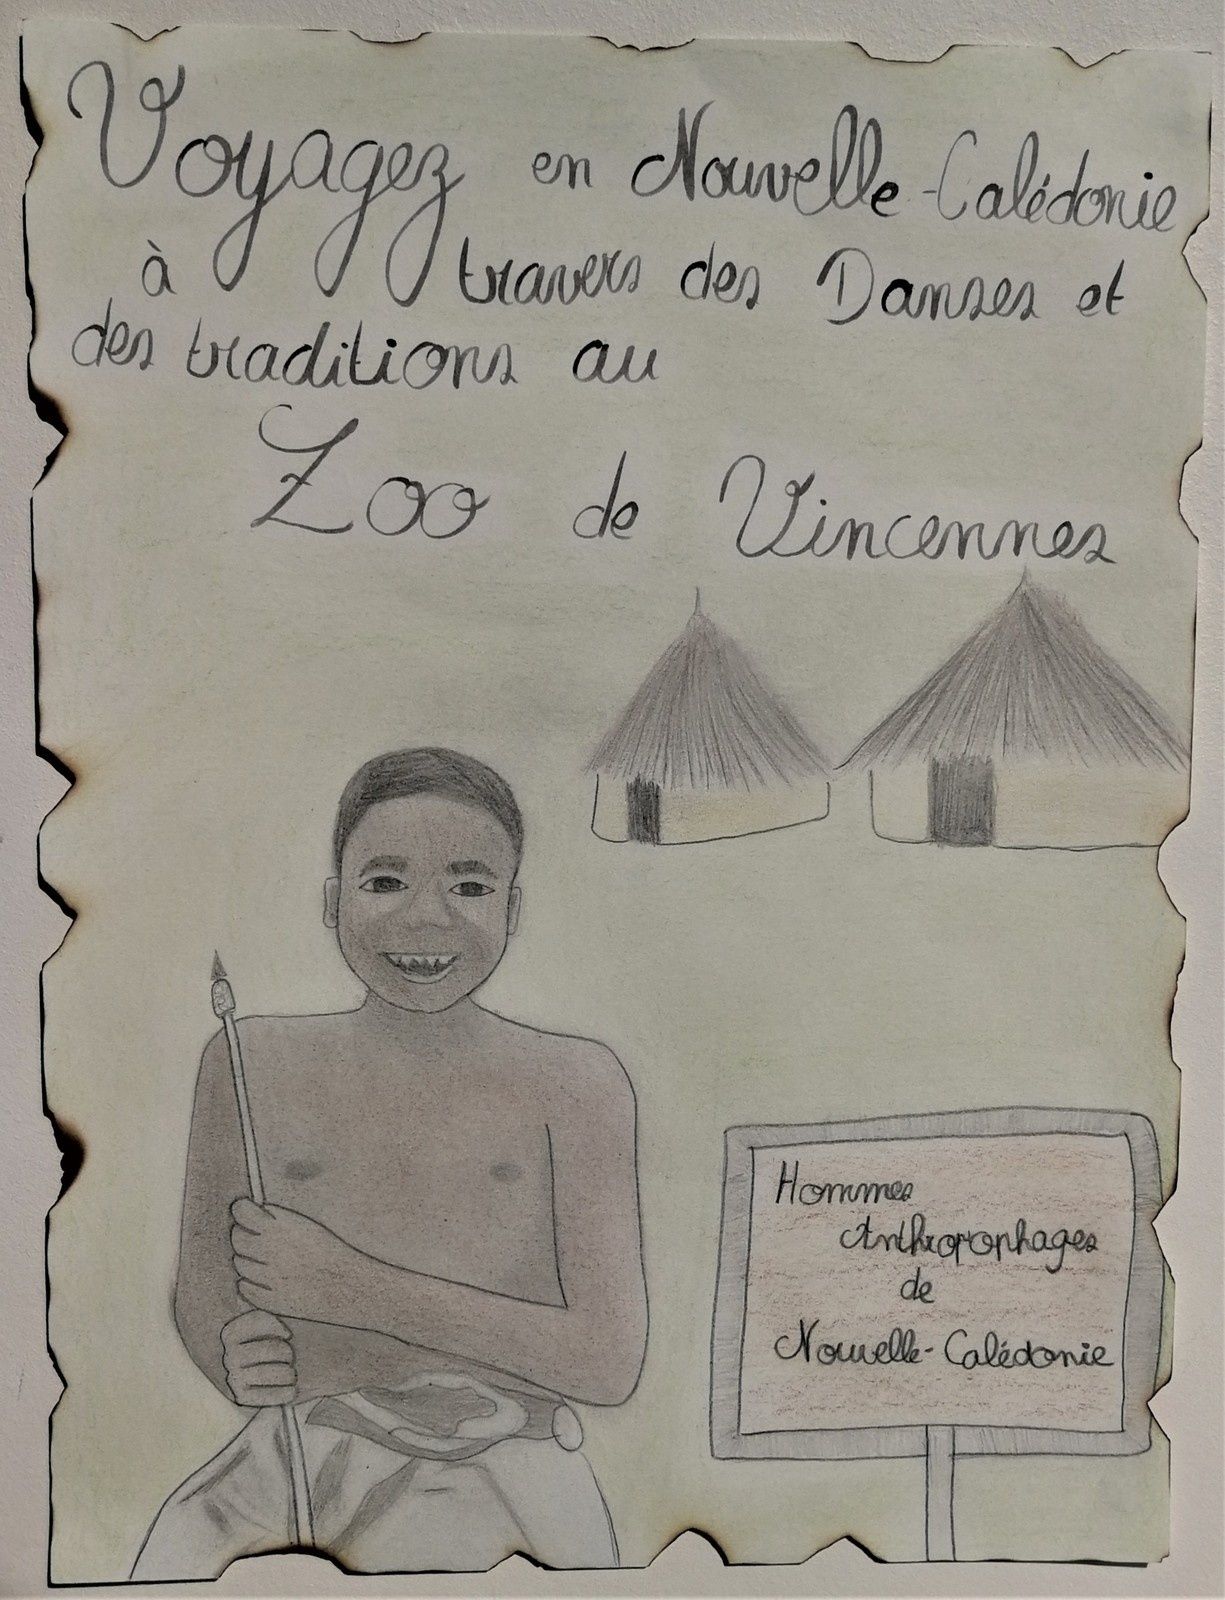 Voyagez en Nouvelle-Calédonie
à travers des Danses et
des traditions au
Zoo de Vincennes
Hommes
Anthropophages
de
Nouvelle-Calédonie